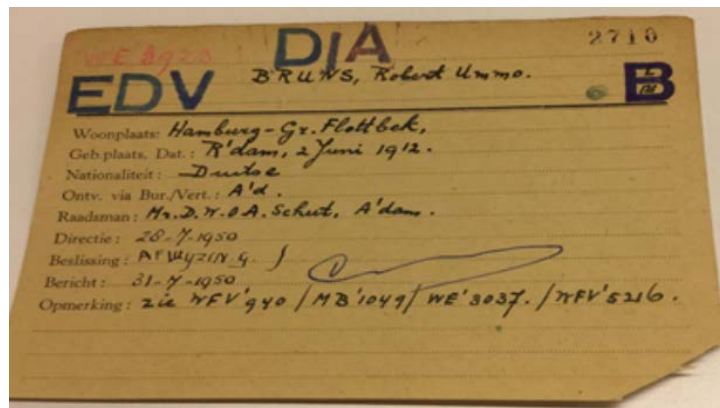 WE 3928 DIA 2710
EDV BRUNS, Robert Ummo. B
Woonplaats: Hamburg-Gr. Flottbek,
Geb.plaats, Dat.: R'dam, 2 Juni 1912.
Nationaliteit: Duitse
Ontv. via Bur./Vert.: A'd.
Raadsman: Mr. D.W.O.A. Schut, A'dam.
Directie: 28-7-1950
Beslissing: AFWYZING.
Bericht: 31-7-1950
Opmerking: zie WFV'940 / MB'1049 / WE'3037. / WFV'5216.